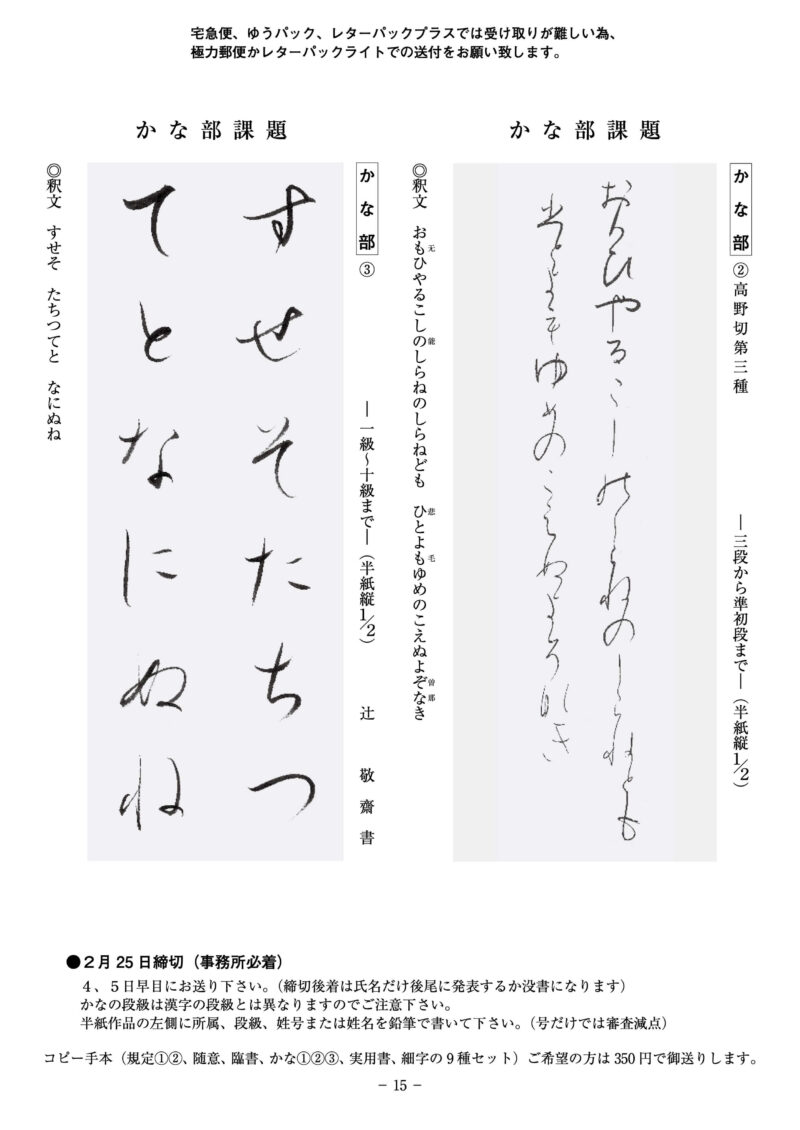 宅急便、ゆうパック、レターパックプラスでは受け取りが難しい為、
極力郵便かレターパックライトでの送付をお願い致します。
かな部課題
かな部 ②高野切第三種 ―三段から準初段まで―(半紙縦1/2)
おもひやるこし能しらねのしらねとも
悲とよ毛ゆめのこえぬよ曽那き
◎釈文 おも无ひやるこしの能しらねのしらねども ひ悲とよも毛ゆめのこえぬよぞ曽な那き
かな部課題
かな部 ③ ―一級~十級まで―(半紙縦1/2) 辻 敬齋書
すせそたちつ
てとなにぬね
◎釈文 すせそ たちつてと なにぬね
●2月25日締切(事務所必着)
4、5日早目にお送り下さい。(締切後着は氏名だけ後尾に発表するか没書になります)
かなの段級は漢字の段級とは異なりますのでご注意下さい。
半紙作品の左側に所属、段級、姓号または姓名を鉛筆で書いて下さい。(号だけでは審査減点)
コピー手本(規定①②、随意、臨書、かな①②③、実用書、細字の9種セット)ご希望の方は350円で御送りします。
− 15 −